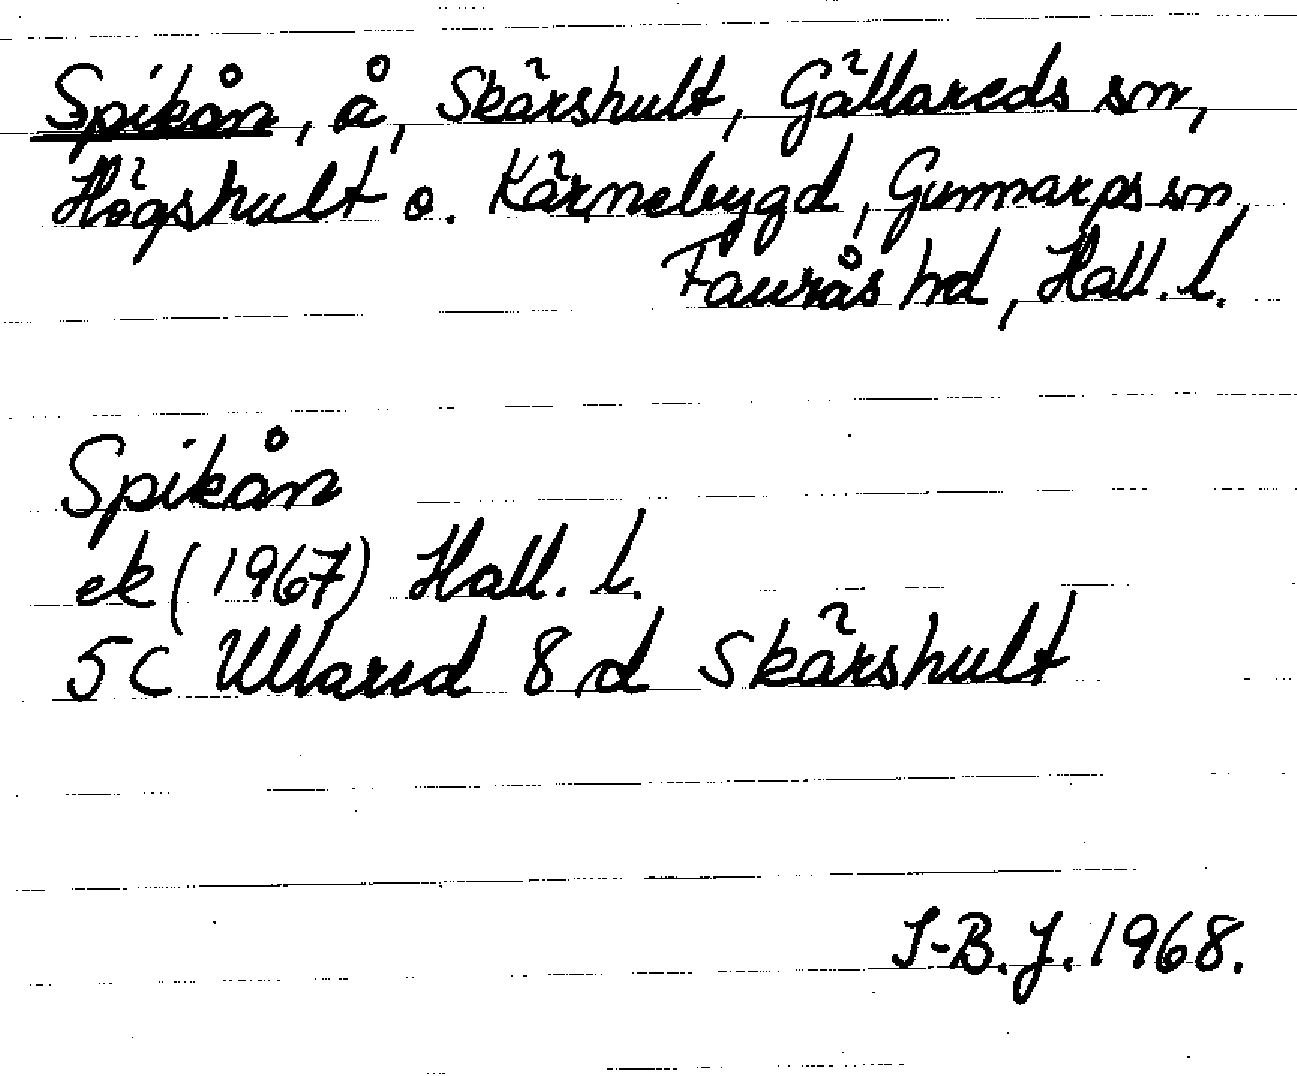 Spikån, å, Skärshult, Gällareds sn,
Högshult o. Kärnebygd, Gunnarps sn,
Faurås hd, Hall. l.
Spikån
ek (1967) Hall. l.
5C Ullared 8 d Skärshult
I-B.J. 1968.